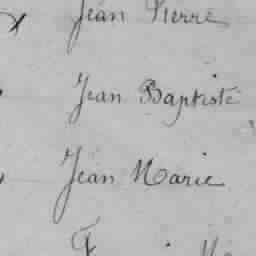 Jean Pierre
Jean Baptiste
Jean Marie